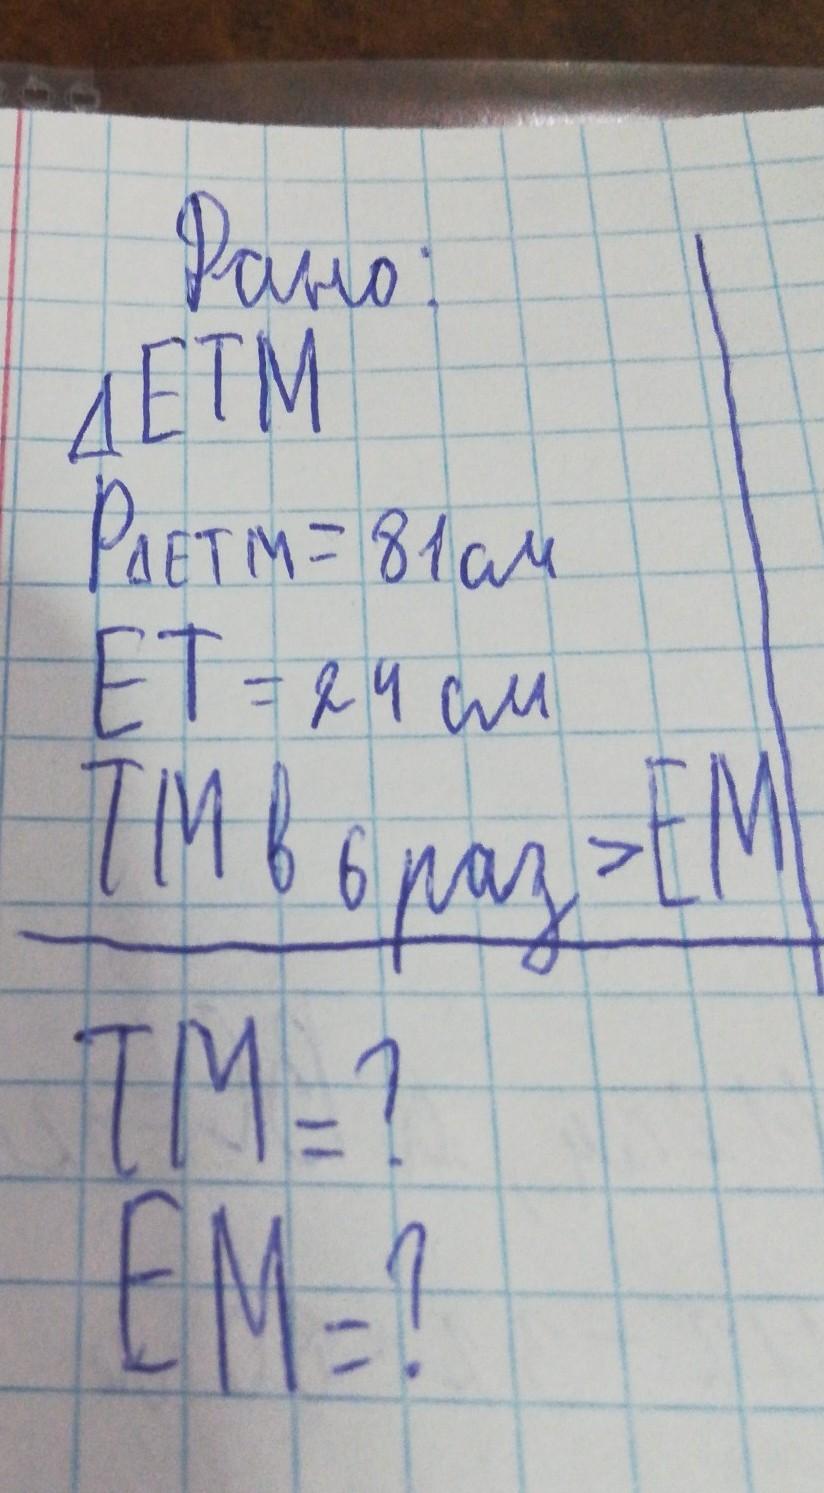 Дано:
ΔETM
PΔETM = 81 см
ET = 24 см
TM в 6 раз > EM
TM = ?
EM = ?